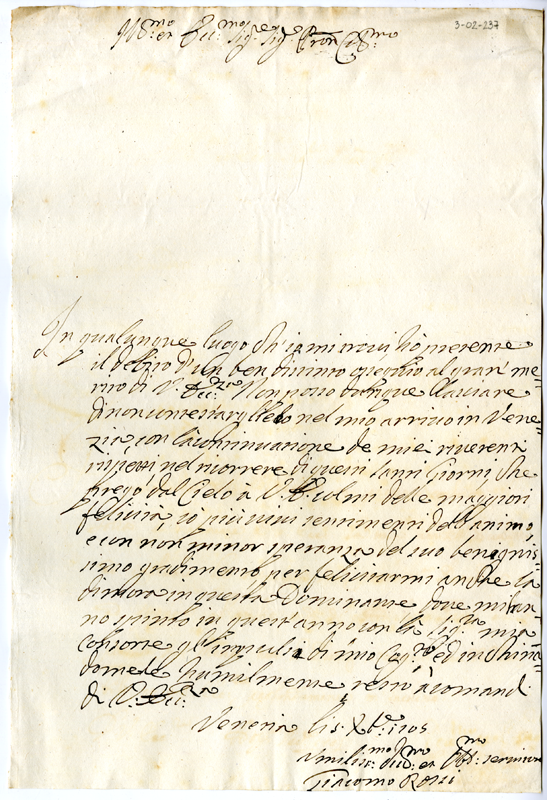 3-02-237
Ill:mo et Ecc:mo Sig:re Sig:re Pron Col:mo
In qualunque luogo ch'io mi trovi hò presente
il debito d'un ben divoto ossequio al gran me=
rito di V: Ecc:za Non posso dunque lasciare
di non contestarglielo nel mio arrivo in Vene=
zia, con la continuazione de miei riverenti
rispetti, nel mentre di questi santi Giorni che
prego dal Cielo à V.E. colmi delle maggiori
felicità, co' più vivi sentimenti dell'animo,
e con non minor speranza del suo benignis=
simo gradimento per felicitarmi anche la
dimora in questa Dominante, dove mi han=
no spinto in quest'anno con la Sig:ra mia
Consorte gl'impulsi di mio Cog:to, ed inchina=
domele humilmente resto à comandi
di V: Ecc:za
Venetia li Xbre 1705
Umiliss:mo Div:mo et Obb:mo servitore
Giacomo Rossi